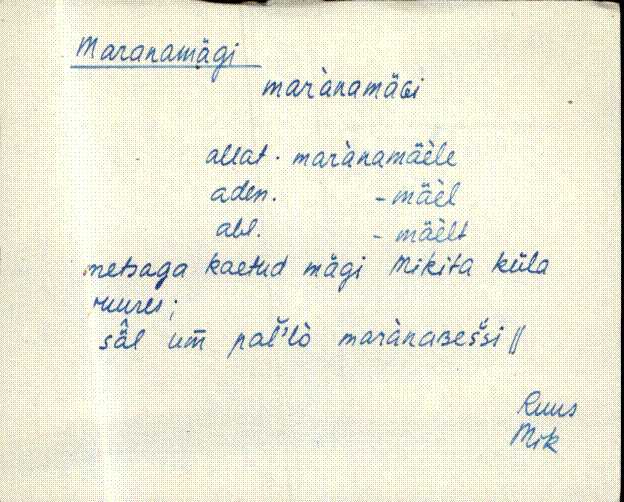 Maranamägi
marànamäGi
allat. marànamäèle
aden. - mäèl
abl. - mäèlt
metsaga kaetud mägi Mikita küla
ruures;
sä̂l um̄ pal̆'lò marànaʙeššì ||
Ruus
Mik